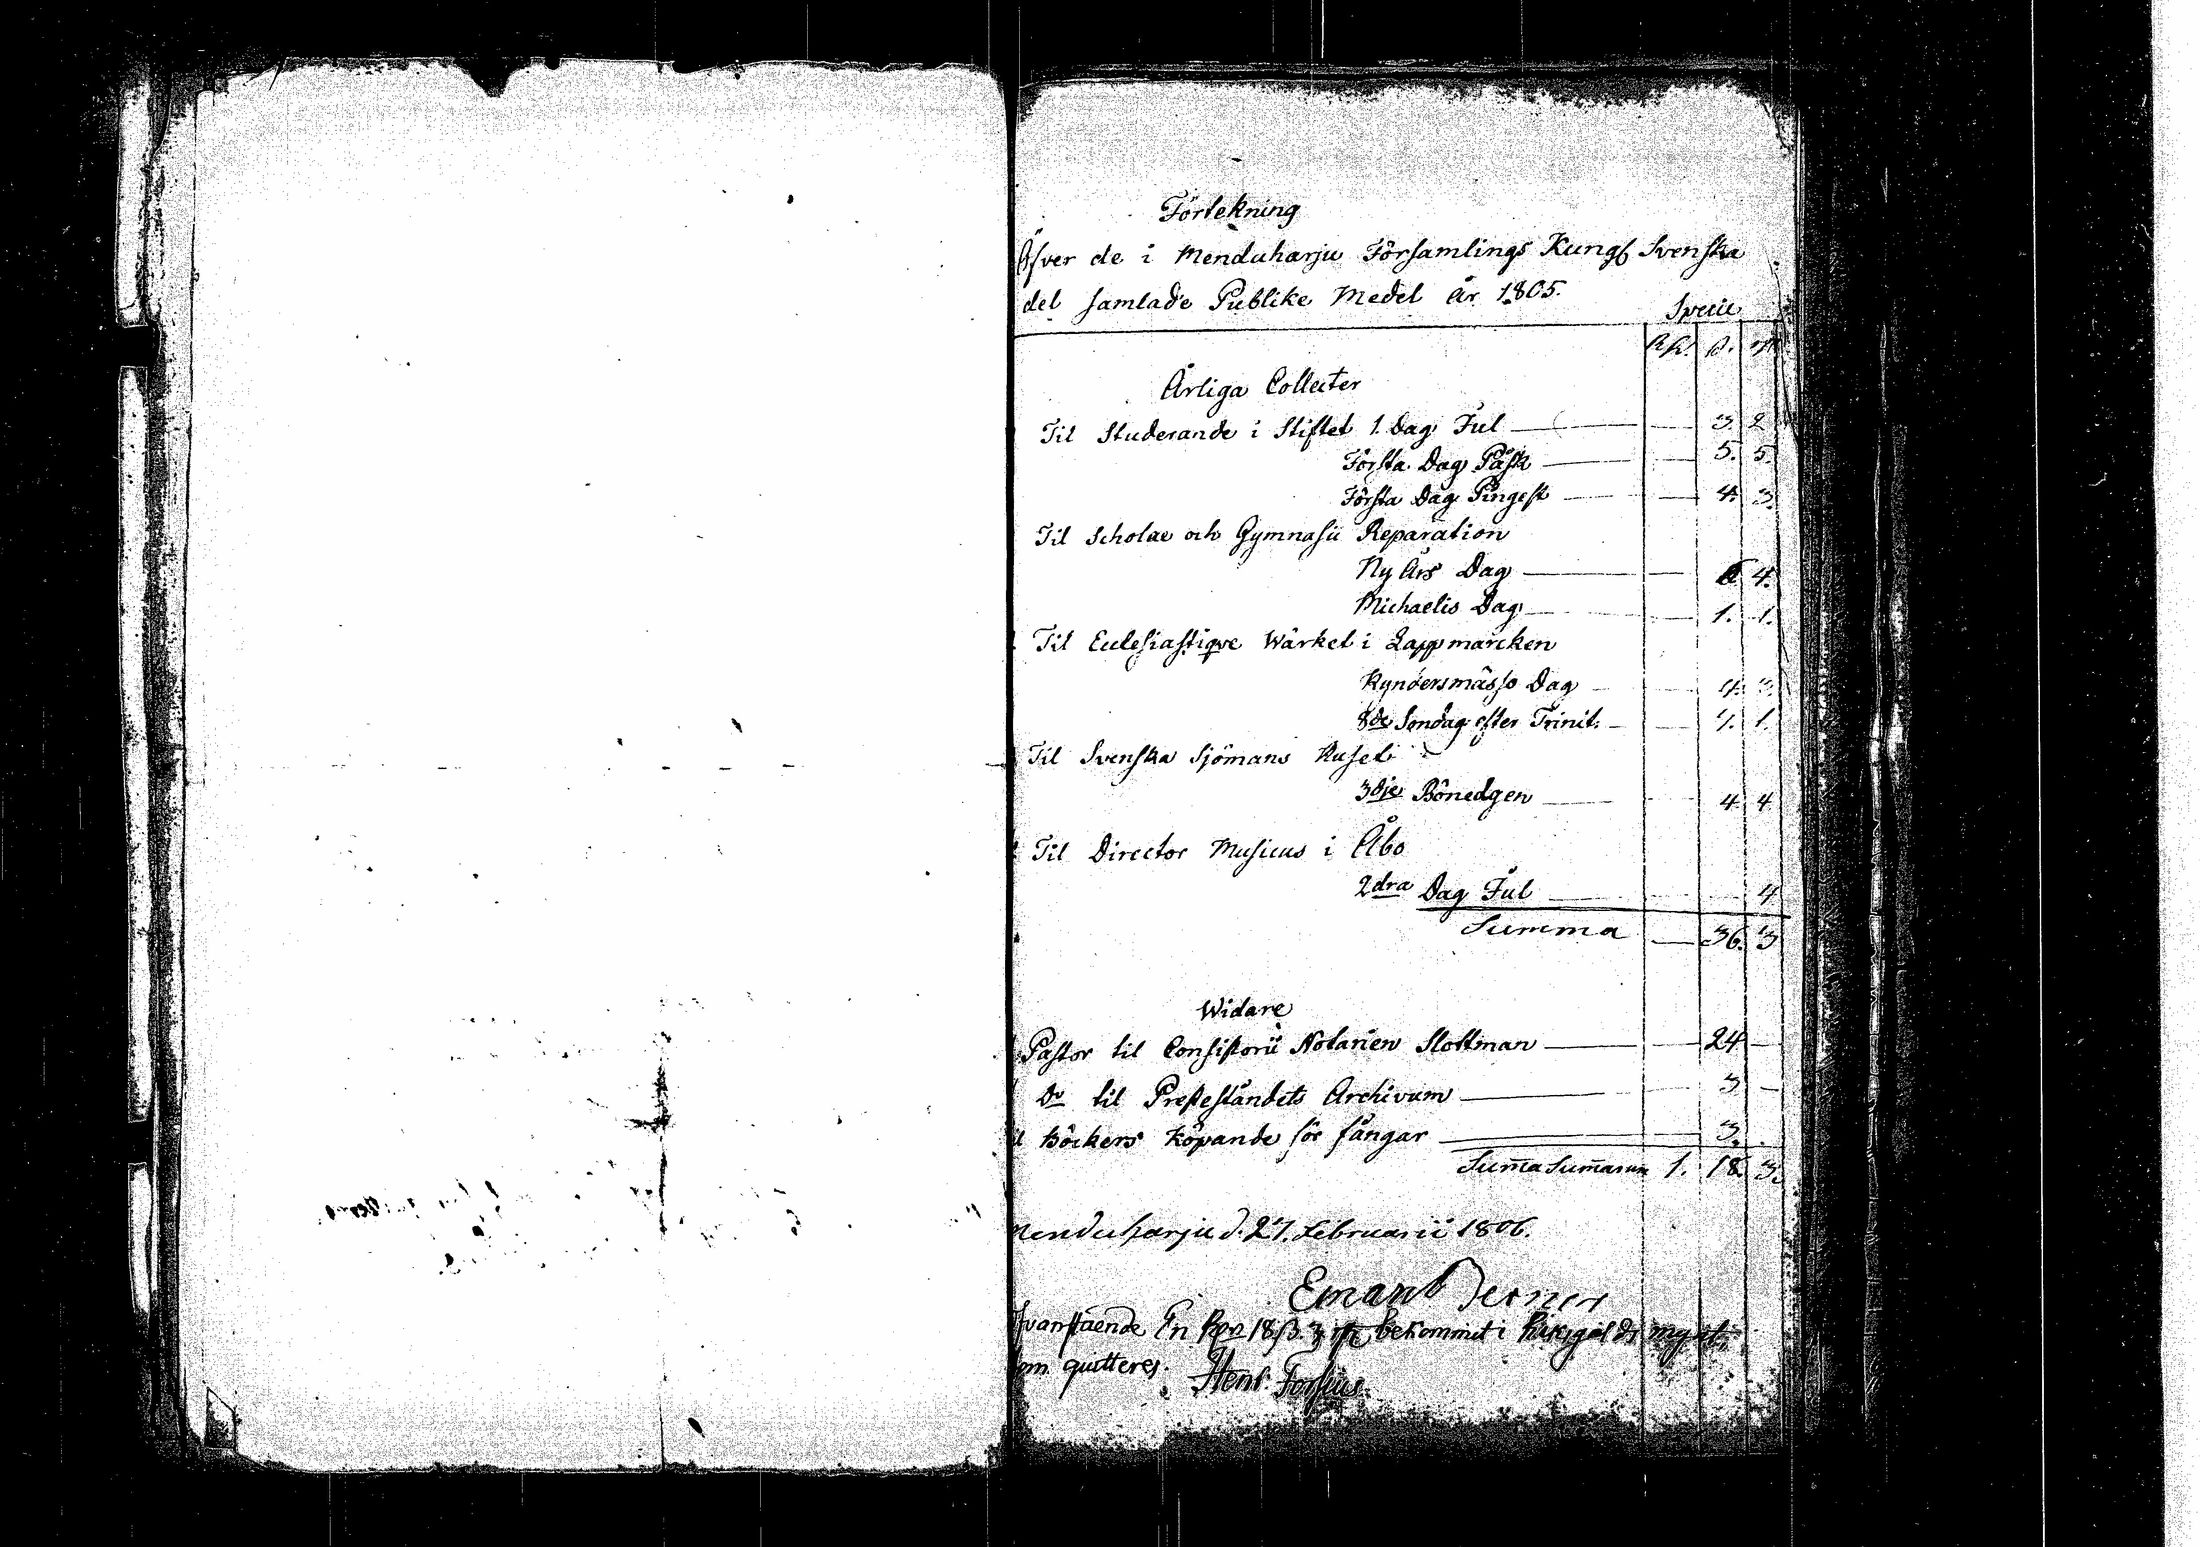 Förtekning
Öfver de i Menduharju Församlings Kungl Svenska
del samlade Publike Medel år 1805.
Specie
Rh. ß. rst
Årliga Collecter
Til Studerande i Stiftet 1. Dag Jul — 3. 2
Första Dag Påsk — 5. 5.
Första Dag Pingest — 4. 3.
Til Scholae och Gymnasii Reparation
Ny Års Dag — 6 4.
Michaelis Dag — 1. 1.
Til Ecclesiastiqve Wärket i Lappmarcken
Kyndersmässo Dag — 4. 3.
8de Söndag efter Trinit: — 1.
Til Svenska Sjömans Huset
3dje Bönedgen — 4. 4
Til Director Musicus i Åbo
2dra Dag Jul — 4
Summa — 36. 3
Widare
Pastor til Consistorii Notarien Slottman — 24 —
Do til Presteståndets Archivum — 3 —
Böckers Köpande för fångar — 3.
Suma Sumarum 1. 18. 3.
Menduharju d. 27. Februarii 1806.
Emanl
Ofvanstående En Rdr 18 ß. 3 rst bekommit i Riksgälds mynt,
som quitteres.
Henr. Forsius.